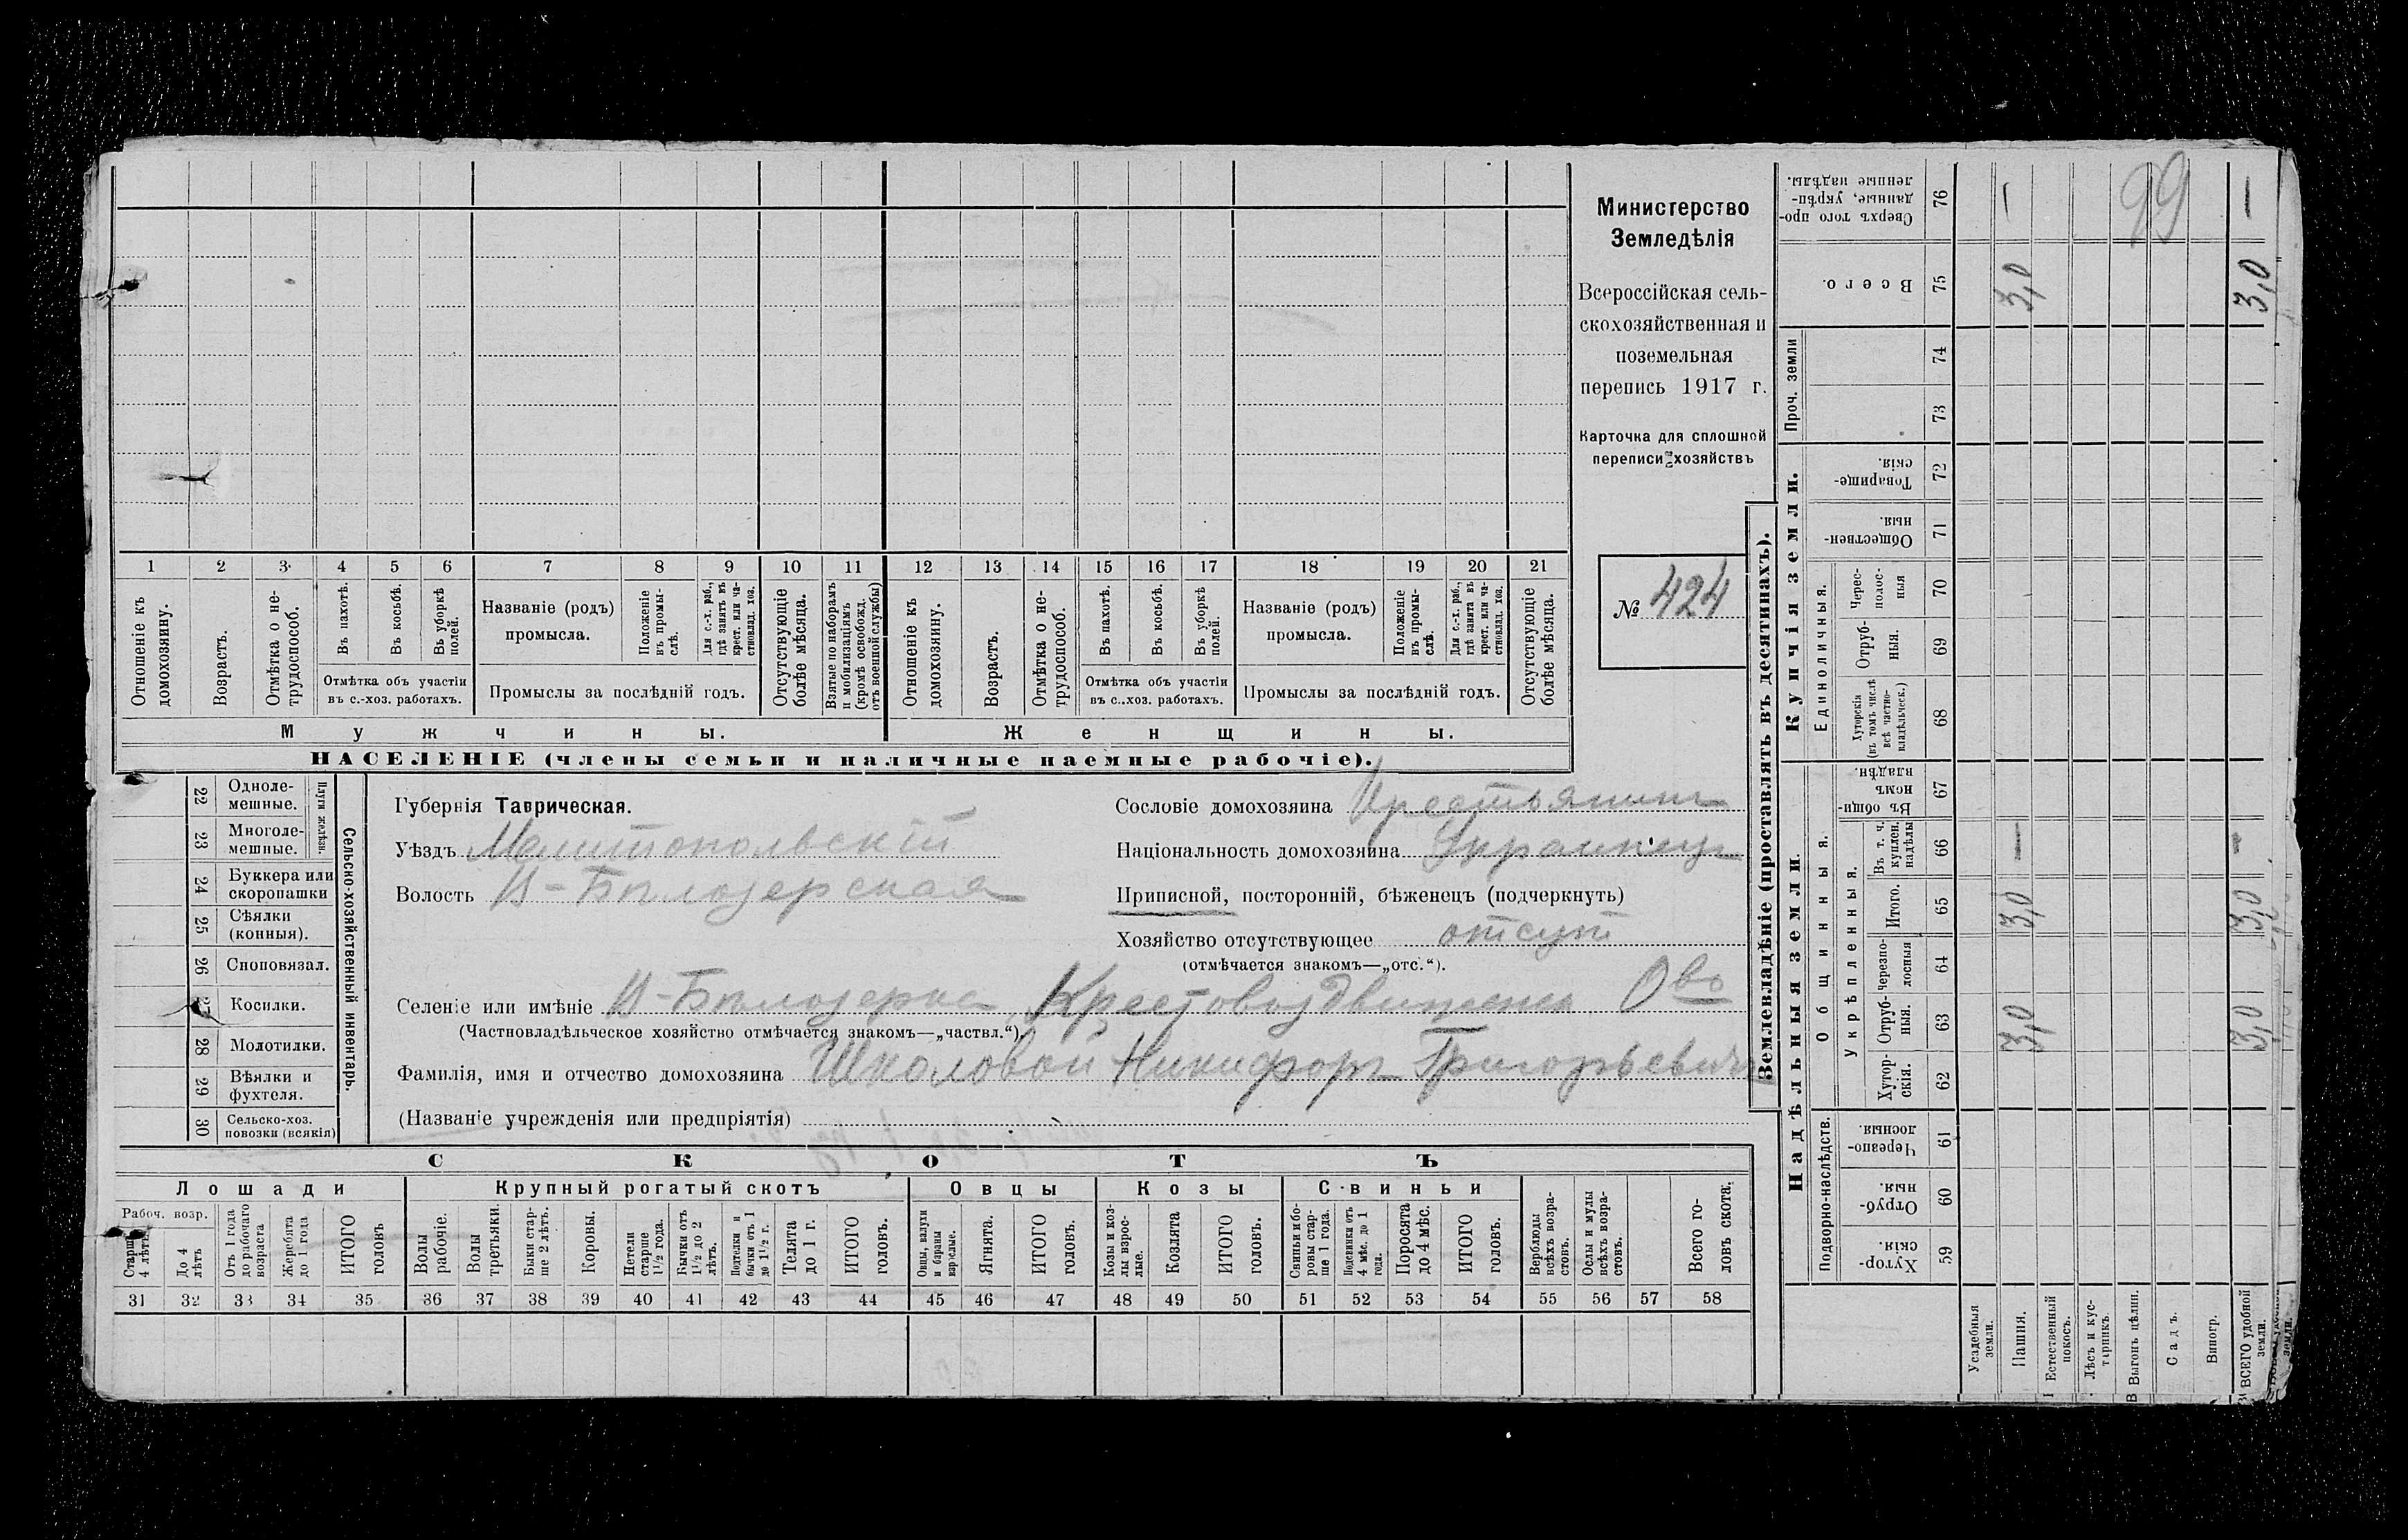 Министерство
Земледѣлія
Всероссійская сель-
скохозяйственная и
поземельная
перепись 1917 г.
Карточка для сплошной
переписи хозяйствъ
№ 424
1 2 3 4 5 6 7 8 9 10 11 12 13 14 15 16 17 18 19 20 21
Отношеніе къ домохозяину.
Возрастъ.
Отмѣтка о не-трудоспособ.
Въ пахотѣ.
Въ косьбѣ.
Въ уборкѣ полей.
Отмѣтка объ участіи
въ с.-хоз. работахъ.
Названіе (родъ)
промысла.
Положеніе въ промы-слѣ.
Для с.-х. раб., гдѣ занятъ въ крест. или ча-стновлад. хоз.
Промыслы за послѣдній годъ.
Отсутствующіе болѣе мѣсяца.
Взятые по наборамъ и мобилизаціямъ (кромѣ освобожд. отъ военной службы)
Отношеніе къ домохозяину.
Возрастъ.
Отмѣтка о не-трудоспособ.
Въ пахотѣ.
Въ косьбѣ.
Въ уборкѣ полей.
Отмѣтка объ участіи
въ с..хоз. работахъ.
Названіе (родъ)
промысла.
Положеніе въ промы-слѣ.
Для с.-х. раб., гдѣ занята въ крест. или ча-стновлад. хоз.
Промыслы за послѣдній годъ.
Отсутствующіе болѣе мѣсяца.
Мужчины.
Женщины.
НАСЕЛЕНІЕ (члены семьи и наличные наемные рабочіе).
Сельско-хозяйственный инвентарь.
Плуги желѣзн.
22 Одноле-мешные.
23 Многоле-мешные.
24 Буккера или скоропашки
25 Сѣялки (конныя).
26 Сноповязал.
Косилки.
28 Молотилки.
29 Вѣялки и фухтеля.
30 Сельско-хоз. повозки (всякія)
Губернія Таврическая.
Уѣздъ Мелитопольскій
Волость В-Бѣлозерская
Сословіе домохозяина Крестьянинъ
Національность домохозяина Украинецъ
Приписной, посторонній, бѣженецъ (подчеркнуть)
Хозяйство отсутствующее отсут
(отмѣчается знакомъ—„отс.“).
Селеніе или имѣніе В-Бѣлозерка, Крестовоздвиженск. Ово
(Частновладѣльческое хозяйство отмѣчается знакомъ—„частвл.“)
Фамилія, имя и отчество домохозяина Школовой Никифоръ Григорьевичъ
(Названіе учрежденія или предпріятія)
СКОТЪ
Лошади
Крупный рогатый скотъ
Овцы
Козы
Свиньи
Рабоч. возр.
Старше 4 лѣтъ
До 4 лѣтъ
Отъ 1 года до рабочаго возраста
Жеребята до 1 года
ИТОГО головъ
Волы рабочіе.
Волы третьяки.
Быки стар-ше 2 лѣтъ.
Коровы.
Нетели старше 1½ года.
Бычки отъ 1½ до 2 лѣтъ.
Подтелки и бычки отъ 1 до 1½ г.
Телята до 1 г.
ИТОГО головъ.
Овцы, валухи и бараны взрослые.
Ягнята.
ИТОГО головъ.
Козы и коз-лы взрос-лые.
Козлята
ИТОГО головъ.
Свиньи и бо-ровы стар-ше 1 года.
Подсвинки отъ 4 мѣс. до 1 года.
Поросята до 4 мѣс.
ИТОГО головъ.
Верблюды всѣхъ возра-стовъ.
Ослы и мулы всѣхъ возра-стовъ.
Всего го-ловъ скота.
31 32 33 34 35 36 37 38 39 40 41 42 43 44 45 46 47 48 49 50 51 52 53 54 55 56 57 58
Землевладѣніе (проставлять въ десятинахъ).
Надѣльныя земли.
Купчія земли.
Проч. земли
Подворно-наслѣдств.
Общинныя.
Укрѣпленныя.
Единоличныя.
Хутор-скія. 59
Отруб-ныя. 60
Черезпо-лосныя. 61
Хутор-скія. 62
Отруб-ныя. 63
Черезпо-лосныя 64
Итого. 65
Въ т. ч. куплен. надѣлы 66
Въ общи-номъ владѣн. 67
Хуторскія (въ томъ числѣ всѣ частно-владѣльческ.) 68
Отруб-ныя. 69
Черес-полос-ныя 70
Обществен-ныя. 71
Товарище-скія. 72
73
74
Всего. 75
Сверхъ того про-данные, укрѣп-ленные надѣлы. 76
Усадебныя земли.
Пашня. 3,0 3,0 — 3,0 —
Естественный покосъ.
Лѣсъ и кус-тарникъ.
Выгонъ цѣлин.
Садъ.
Виногр.
ВСЕГО удобной земли. 3,0 3,0 - 3,0 —
99